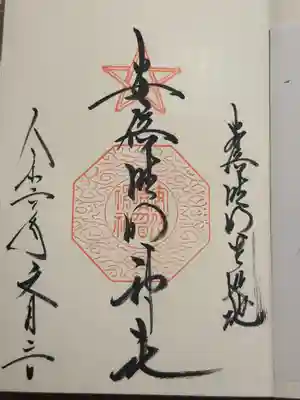 安倍晴明生誕地
安倍晴明神社
令和六年文月二日